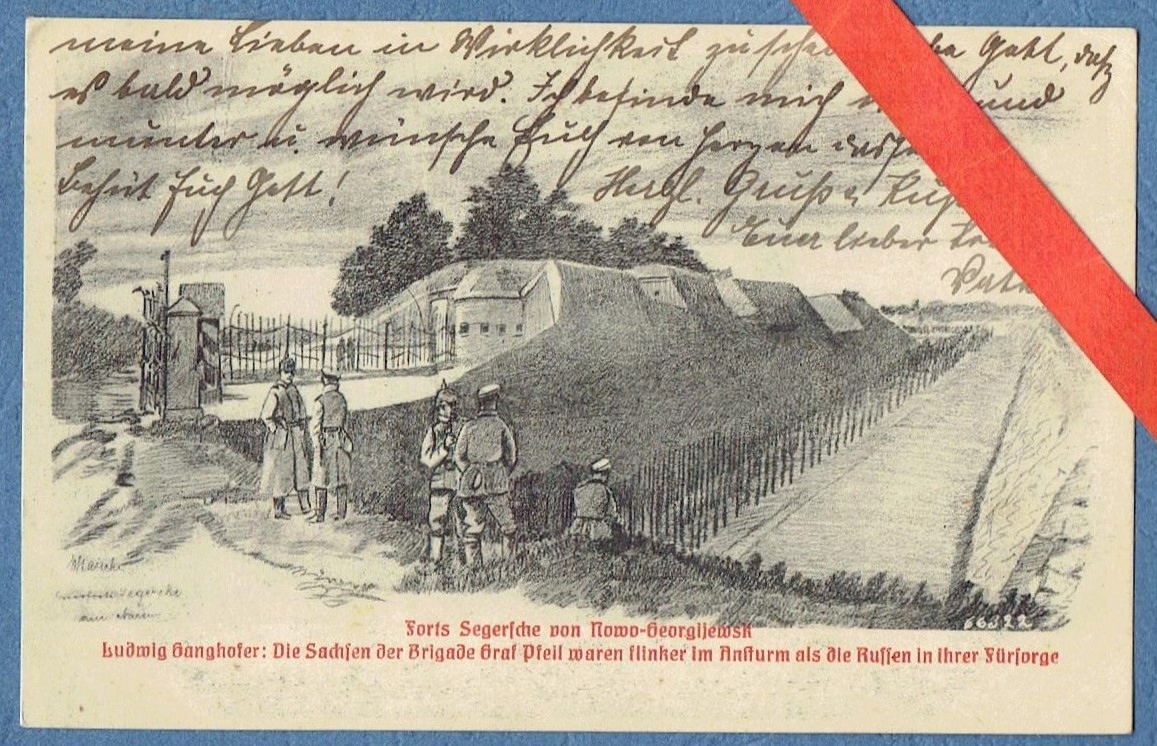 meine Lieben in Wirklichkeit zu Gott, daß
es bald möglich wird. Ich befinde mich und
munter u. wünsche Euch von Herzen dasselbe
Behüt Euch Gott!
Herzl. Gruß u. Kuß
Euer lieber
Vater
66822
Forts Segersche von Nowo-Georgijewsk
Ludwig Ganghofer: Die Sachsen der Brigade Graf Pfeil waren flinker im Ansturm als die Russen in ihrer Fürsorge